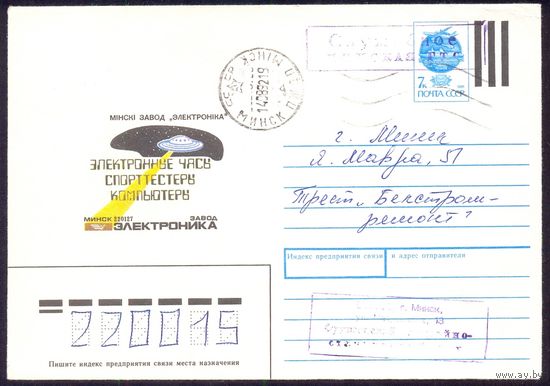 МІНСКІ ЗАВОД „ЭЛЕКТРОНІКА"
ЭЛЕКТРОННЫЕ ЧАСЫ
СПОРТТЕСТЕРЫ
КОМПЬЮТЕРЫ
МИНСК 220127 ЗАВОД
ЭЛЕКТРОНИКА
МІНСК
МИНСК
7к
ПОЧТА СССР
г. Минск
Я. Мавра, 51
Трест „
ремонт"
Индекс предприятия связи и адрес отправителя
г. Минск,
220015
Пишите индекс предприятия связи места назначения
www.ay.by